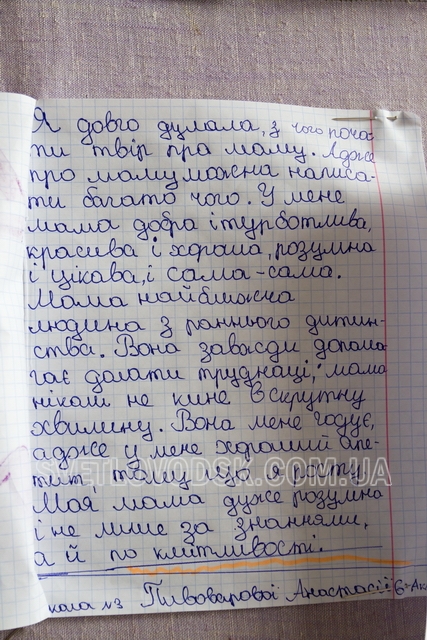 Я довго думала, з чого поча-
ти твір пра маму. Адже
про маму можна написа-
ти багато чого. У мене
мама добра і турботлива,
красива і хороша, розумна
і цікава, і сама-сама.
Мама найближча
людина з раннього дитин-
ства. Вона завжди допома-
гає долати труднаці, мама
ніколи не кине в скрутну
хвилину. Вона мене годує,
адже у мене хороший апе-
тит, тому що я росту.
SVETLOVODSK.COM.UA
Моя мама дуже розумна
і не лише за знаннями,
а й по кмітливості.
кола №3 Пивоварової Анастасії 6-А кл